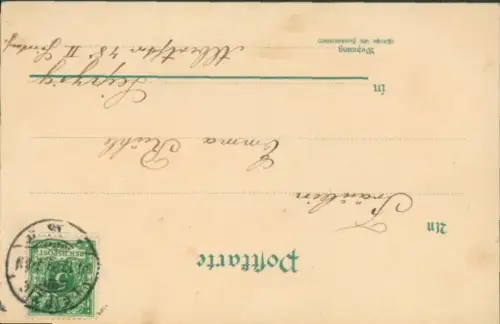 Postkarte
An
Fräulein
Emma Rühle
in
Leipzig
Wohnung
(Straße und Hausnummer)
Albertstr. 48 II
REICHSPOST
5